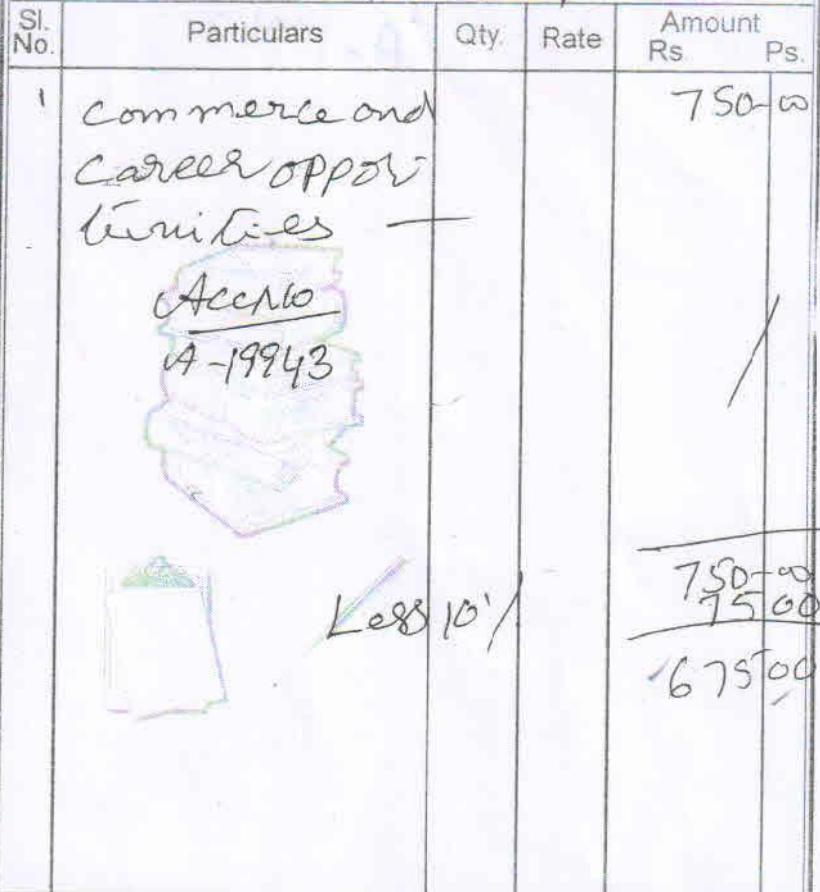 Sl. No. Particulars Qty. Rate Amount Rs. Ps.
1 Commerce and 750-00
Career oppor
tunities —
Acc No
A-19943
750-00
Less 10% 75 00
675 00